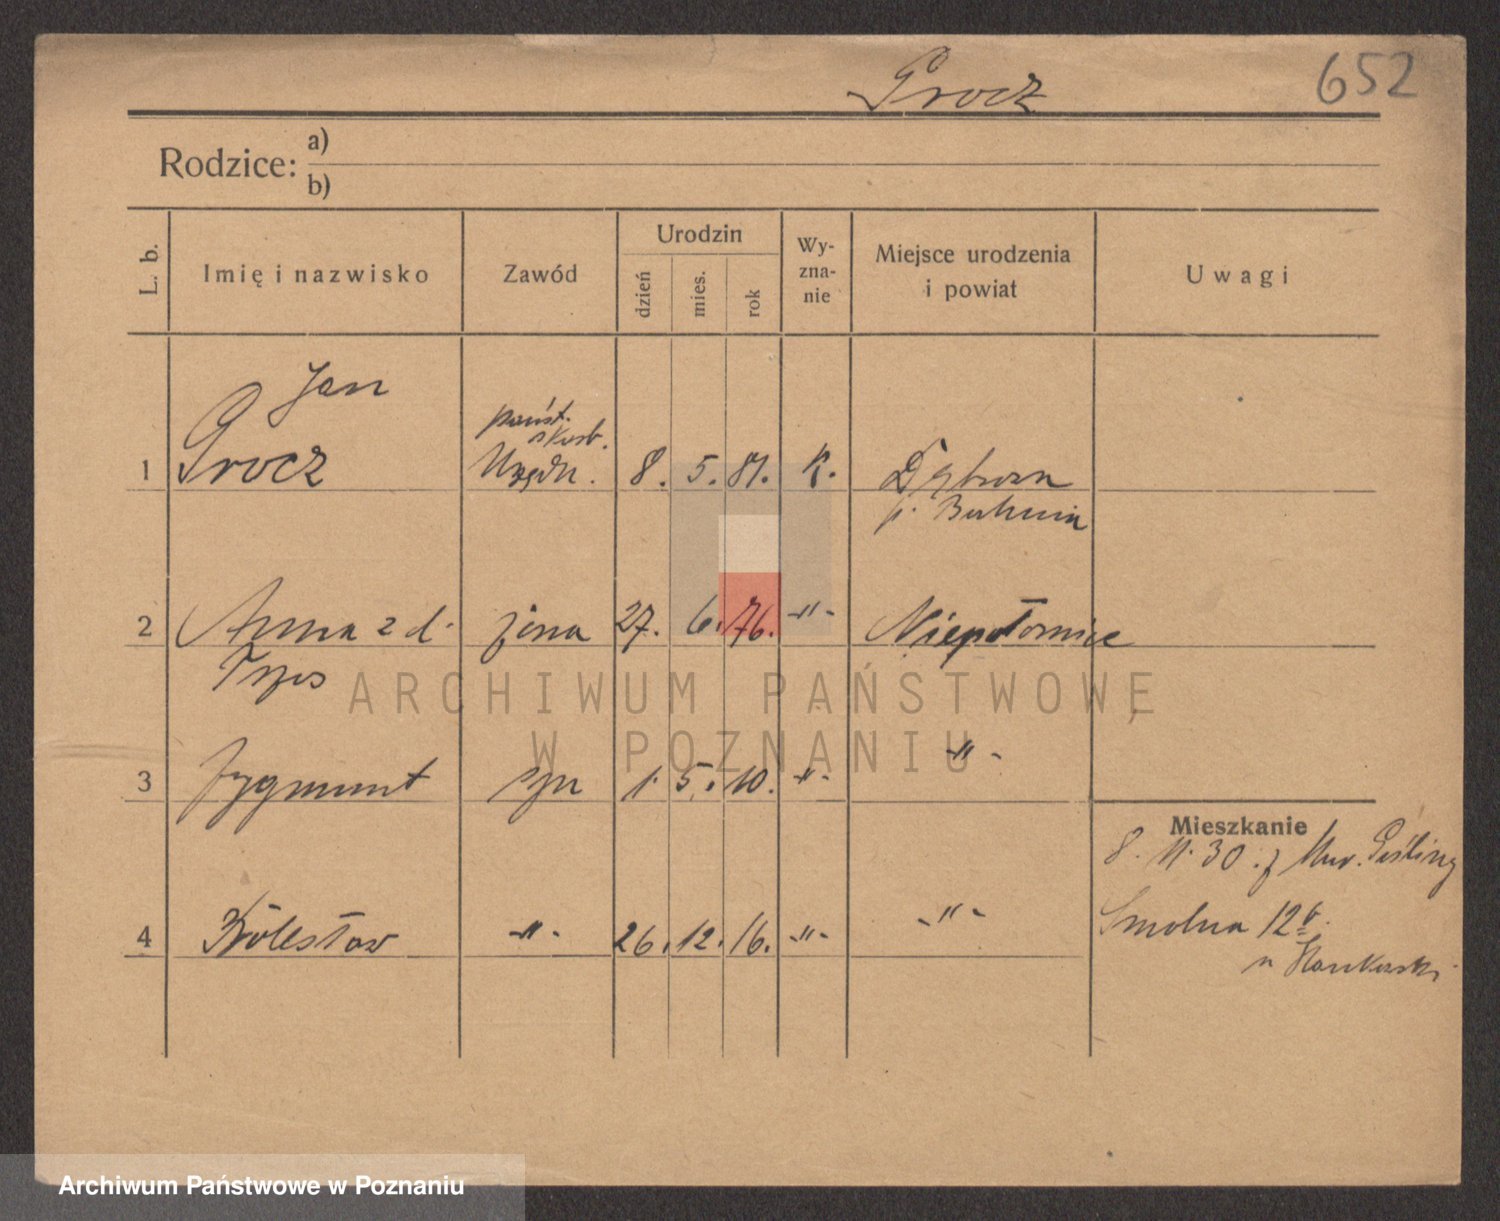 Procz
652
Rodzice:
a)
b)
L. b.
Imię i nazwisko
Zawód
Urodzin
dzień
mies.
rok
Wy-
zna-
nie
Miejsce urodzenia
i powiat
Uwagi
Jan
państ.
skarb.
1 Procz Urzędn. 8. 5. 81. K.
p. Bochnia
2 Anna z d. żona 27. 6. 76. -"- Niepołomice
3 Zygmunt syn 1. 5. 10. -"- -"-
Mieszkanie
8. 11. 30. z
4 Bolesław -"- 26. 12. 16. -"- -"-
Smolna 12
ARCHIWUM PAŃSTWOWE
W POZNANIU
Archiwum Państwowe w Poznaniu